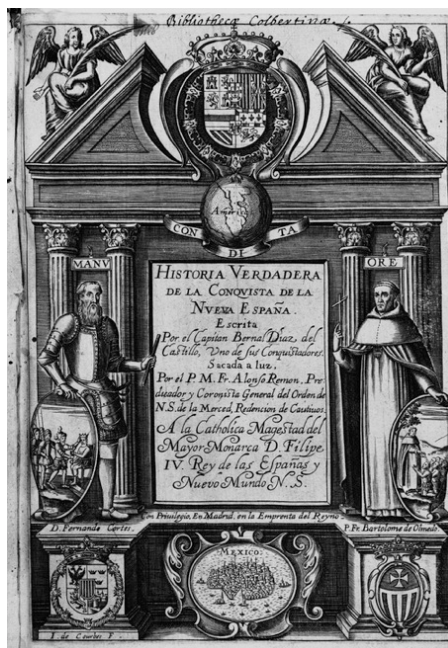 Bibliothecæ Colbertinæ.
America
CON DI TA
MANV
ORE
HISTORIA VERDADERA
DE LA CONQVISTA DE LA
NVEVA ESPAÑA.
Escrita
Por el Capitan Bernal Diaz, del
Castillo, Vno de sus Conquistadores.
Sacada a luz,
Por el P. M. Fr. Alonso Remon, Pre
dicador y Coronista General del Orden de
N. S. de la Merced, Redencion de Cautivos.
A la Catholica Magestad del
Mayor Monarca D. Filipe
IV. Rey de las Españas y
Nuevo Mundo N. S.
Con Privilegio, En Madrid, en la Emprenta del Reyno
D. Fernando Cortes.
P. Fr. Bartolome de Olmedo
MEXICO:
I. de Courbes F.